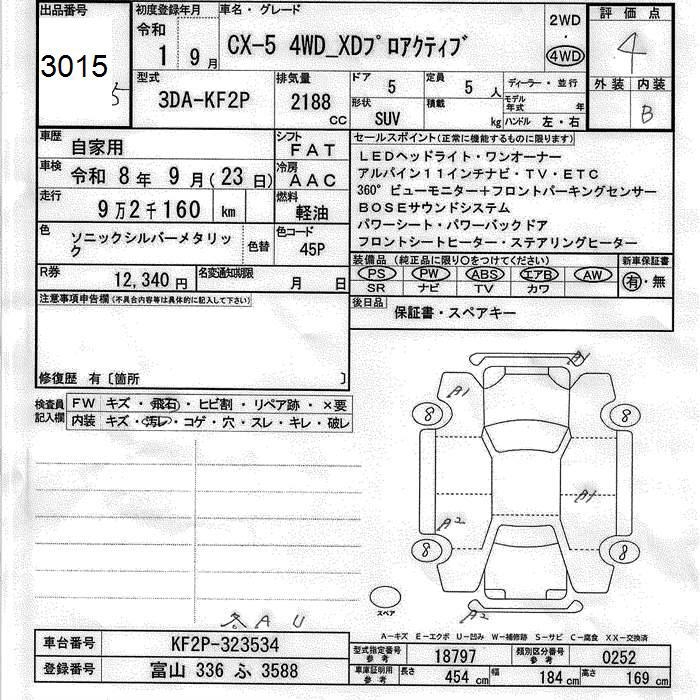 出品番号
3015
5
初度登録年月
令和
1 9月
車名・グレード
CX-5 4WD_XDプロアクティブ
2WD
・
4WD
評価点
4
外装 内装
B
型式
3DA-KF2P
排気量
2188 CC
ドア 5
定員 5 人
形状 SUV
積載 kg
ディーラー・並行
モデル年式 年
ハンドル 左・右
車歴 自家用
シフト FAT
車検 令和 8年 9月(23日)
冷房 AAC
走行 9万2千160 km
燃料 軽油
色 ソニックシルバーメタリック
色替
色コード 45P
R券 12,340円
名変通知期限 月 日
セールスポイント(正常に機能するものに限ります)
LEDヘッドライト・ワンオーナー
アルパイン11インチナビ・TV・ETC
360°ビューモニター+フロントパーキングセンサー
BOSEサウンドシステム
パワーシート・パワーバックドア
フロントシートヒーター・ステアリングヒーター
装備品(純正品に限り〇をつけてください)
新車保証書
PS PW ABS エアB AW
SR ナビ TV カワ
有・無
後日品 保証書・スペアキー
注意事項申告欄(不具合内容等は具体的に記入して下さい)
修復歴 有〔箇所 〕
検査員記入欄
FW キズ・飛石・ヒビ割・リペア跡・×要
内装 キズ・汚レ・コゲ・穴・スレ・キレ・破レ
A1
A1
8 8
A1
A2
8 8
スペア
A2
冬 A U
A-キズ E-エクボ U-凹み W-補修跡 S-サビ C-腐食 XX-交換済
車台番号 KF2P-323534
登録番号 富山 336 ふ 3588
型式指定番号 参考 18797
類別区分番号 参考 0252
車庫証明用 参考
長さ 454 cm
幅 184 cm
高さ 169 cm